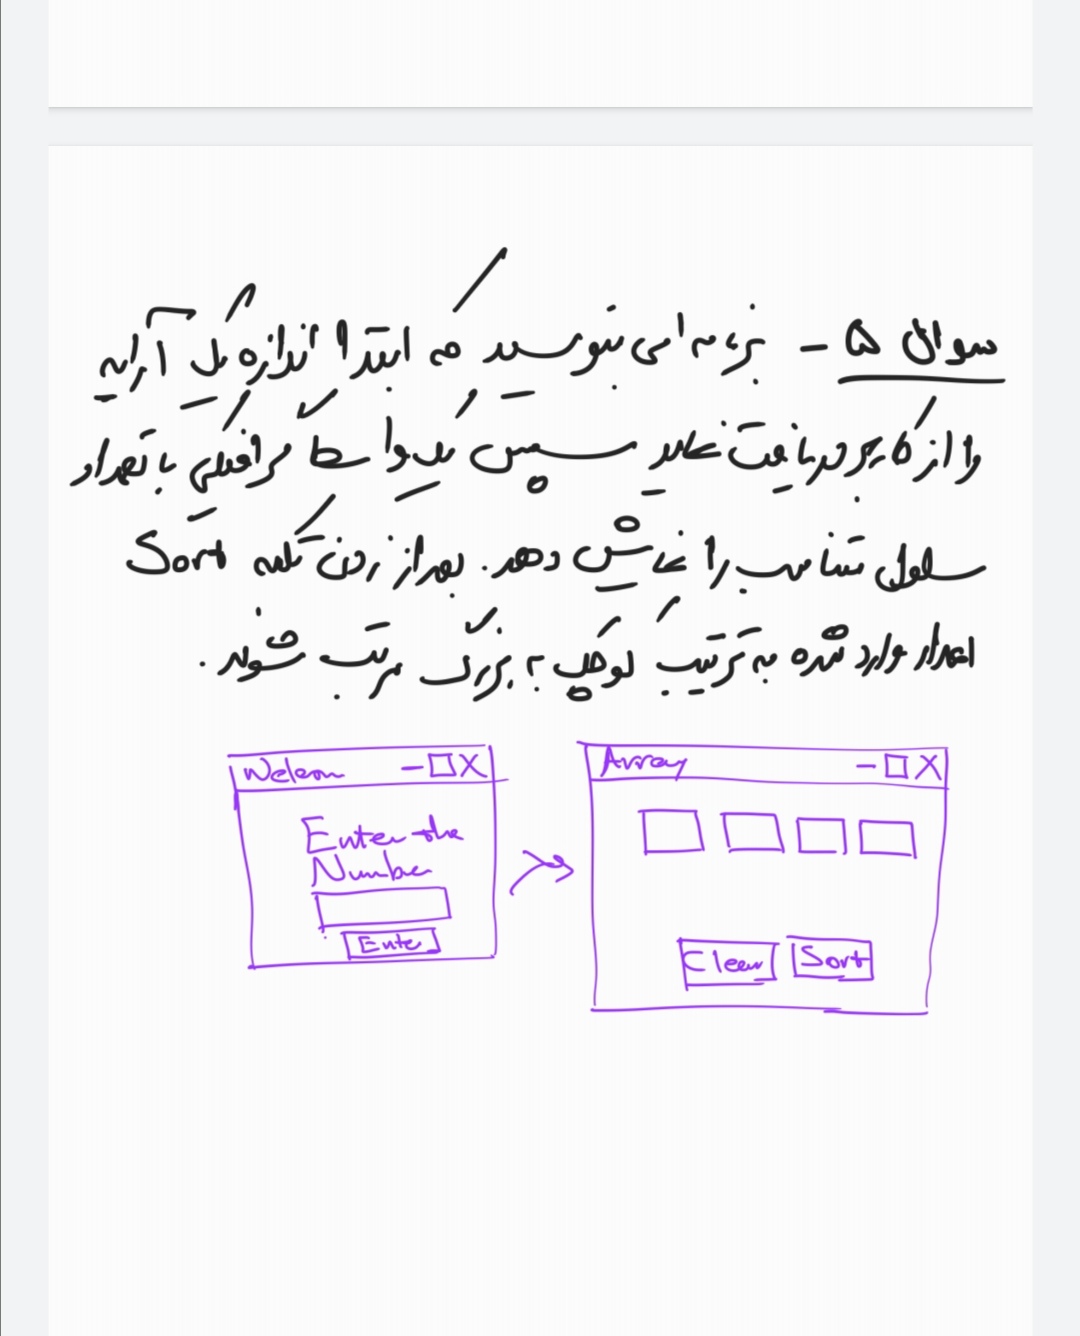 سوال ۵ - برنامه ای بنویسید که ابتدا اندازه یک آرایه
را از کاربر دریافت نماید سپس یک واسط گرافیکی با تعداد
سلول متناسب را نمایش دهد. بعد از زدن کلمه Sort
اعداد وارد شده به ترتیب کوچک به بزرگ مرتب شوند.
Welcom - □ X
Array - □ X
Enter the
Number
Enter
Clear Sort